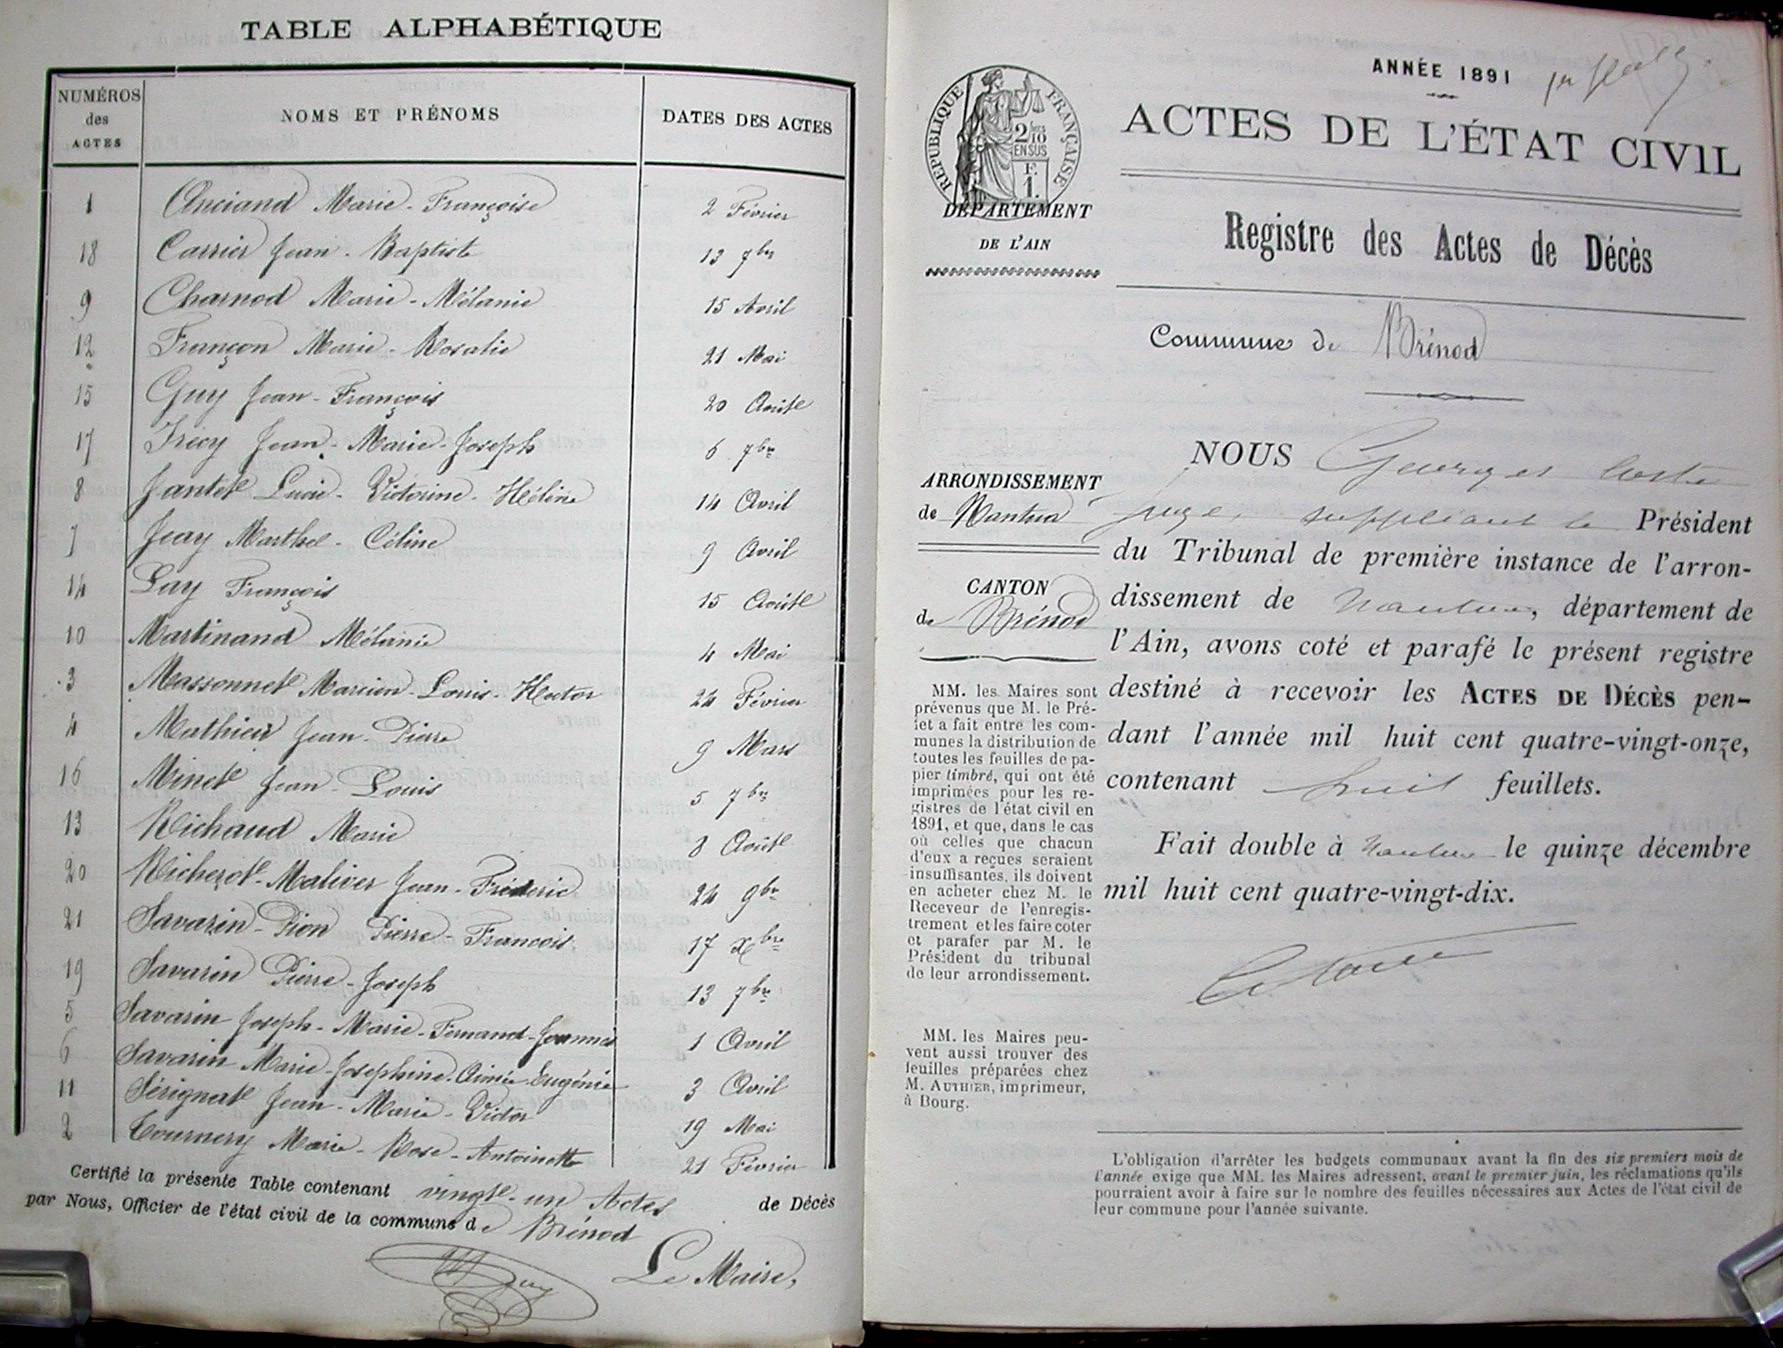 TABLE ALPHABÉTIQUE
NUMÉROS des ACTES
NOMS ET PRÉNOMS
DATES DES ACTES
1 Anciand Marie-Françoise 2 Février
18 Carrier Jean-Baptiste 13 7bre
9 Charnod Marie-Mélanie 15 Avril
12 Françon Marie-Rosalie 21 Mai
15 Guy Jean-François 20 Août
17 Irécy Jean-Marie-Joseph 6 7bre
8 Jantet Lucie-Victorine-Héline 14 Avril
7 Jeay Marthe-Céline 9 Avril
14 Lay François 15 Août
10 Martinand Mélanie 4 Mai
3 Massonnet Marcion-Louis-Hector 24 Février
4 Mathieu Jean-Pierre 9 Mars
16 Minet Jean-Louis 5 7bre
13 Richaud Marie 8 Août
20 Richerot-Maliver Jean-Fréderic 24 9bre
21 Savarin-Pion Pierre-François 17 Xbre
19 Savarin Pierre-Joseph 13 7bre
5 Savarin Joseph-Marie-Fernand-Joannes 1 Avril
6 Savarin Marie-Josephine-Aimée-Eugénie 3 Avril
11 Sérignat Jean-Marie-Victor 19 Mai
2 Tournery Marie-Rose-Antoinette 21 Février
Certifié la présente Table contenant vingt-un Actes de Décès
par Nous, Officier de l'état civil de la commune de Brénod
Le Maire,
Guy
ANNÉE 1891
RÉPUBLIQUE FRANÇAISE
2 10
EN SUS
F.
1.
ACTES DE L'ÉTAT CIVIL
DÉPARTEMENT
DE L'AIN
Registre des Actes de Décès
Commune de Brénod
ARRONDISSEMENT
de Nantua
CANTON
de Brénod
MM. les Maires sont
prévenus que M. le Pré-
fet a fait entre les com-
munes la distribution de
toutes les feuilles de pa-
pier timbré, qui ont été
imprimées pour les re-
gistres de l'état civil en
1891, et que, dans le cas
où celles que chacun
d'eux a reçues seraient
insuffisantes, ils doivent
en acheter chez M. le
Receveur de l'enregis-
trement et les faire coter
et parafer par M. le
Président du tribunal
de leur arrondissement.
MM. les Maires peu-
vent aussi trouver des
feuilles préparées chez
M. AUTHIER, imprimeur,
à Bourg.
NOUS Georges Coste
juge, suppléant le Président
du Tribunal de première instance de l'arron-
dissement de Nantua, département de
l'Ain, avons coté et parafé le présent registre
destiné à recevoir les ACTES DE DÉCÈS pen-
dant l'année mil huit cent quatre-vingt-onze,
contenant huit feuillets.
Fait double à Nantua le quinze décembre
mil huit cent quatre-vingt-dix.
L'obligation d'arrêter les budgets communaux avant la fin des six premiers mois de
l'année exige que MM. les Maires adressent, avant le premier juin, les réclamations qu'ils
pourraient avoir à faire sur le nombre des feuilles nécessaires aux Actes de l'état civil de
leur commune pour l'année suivante.